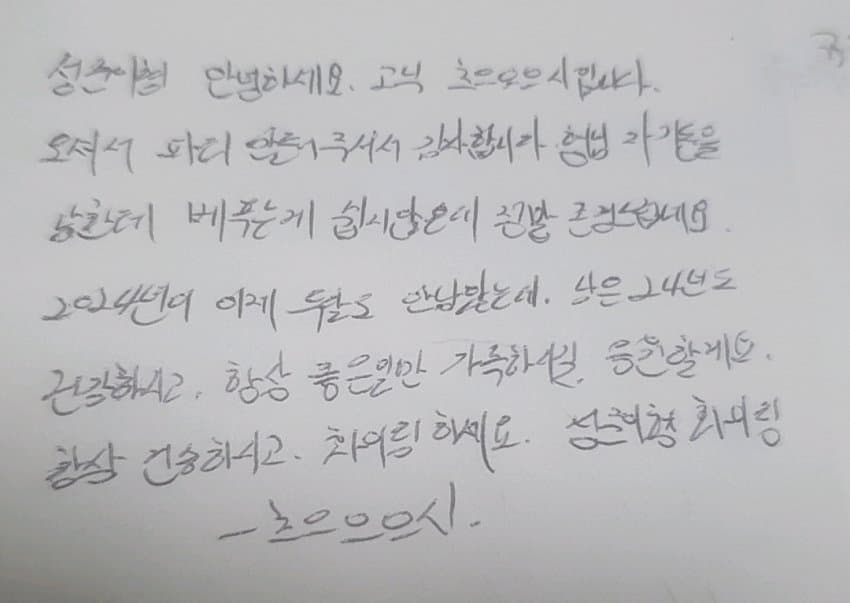 성준이형 안녕하세요. 고닉 초으으으시입니다.
오셔서 파티 만들어주셔서 감사합니다 형님 자기돈을
남한테 베푸는게 쉽지않은데 정말 존경스럽네요.
2024년이 이제 두달도 안남았는데. 남은 24년도
건강하시고. 항상 좋은일만 가득하시길 응원할게요.
항상 건승하시고. 화이링 하세요. 성준이형 화이링
- 초으으으시.